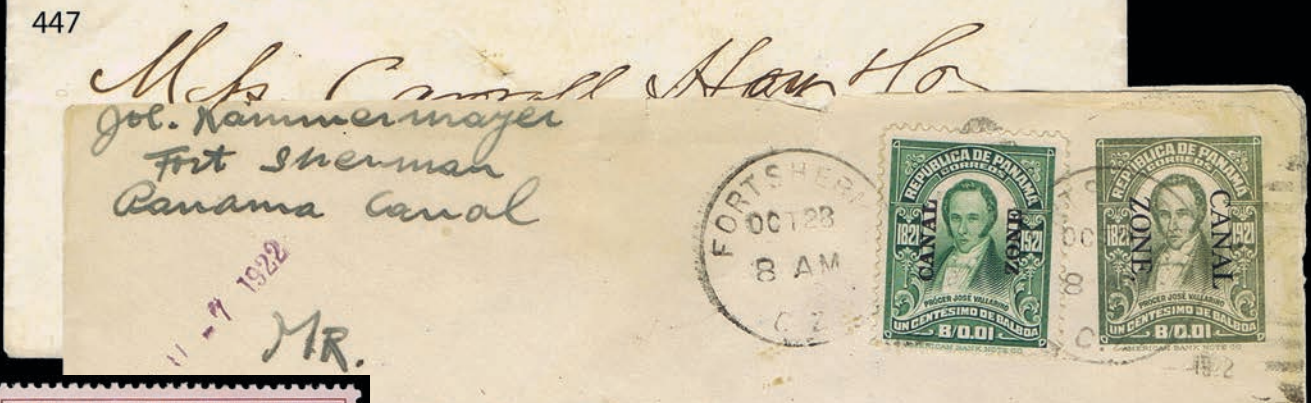 447
Jol. Kammermayer
Fort Sherman
Panama Canal
7 1922
MR.
FORT SHERM
OCT 28
8 AM
C Z
REPUBLICA DE PANAMA
CORREOS
1821 1921
CANAL ZONE
PRÓCER JOSÉ VALLARINO
UN CENTESIMO DE BALBOA
B/0.01
AMERICAN BANK NOTE CO.
REPUBLICA DE PANAMA
CORREOS
1821 1921
CANAL ZONE
PROCER JOSÉ VALLARINO
UN CENTESIMO DE BALBOA
B/0.01
AMERICAN BANK NOTE CO.
8
C
1922